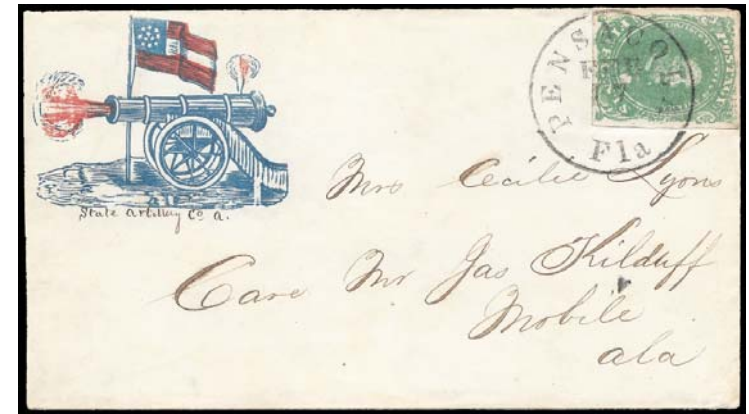 State Artillery Co. A.
PENSACOLA
Fla
Mrs Cecilie Lyons
Care Mr Jas Kilduff
Mobile
Ala